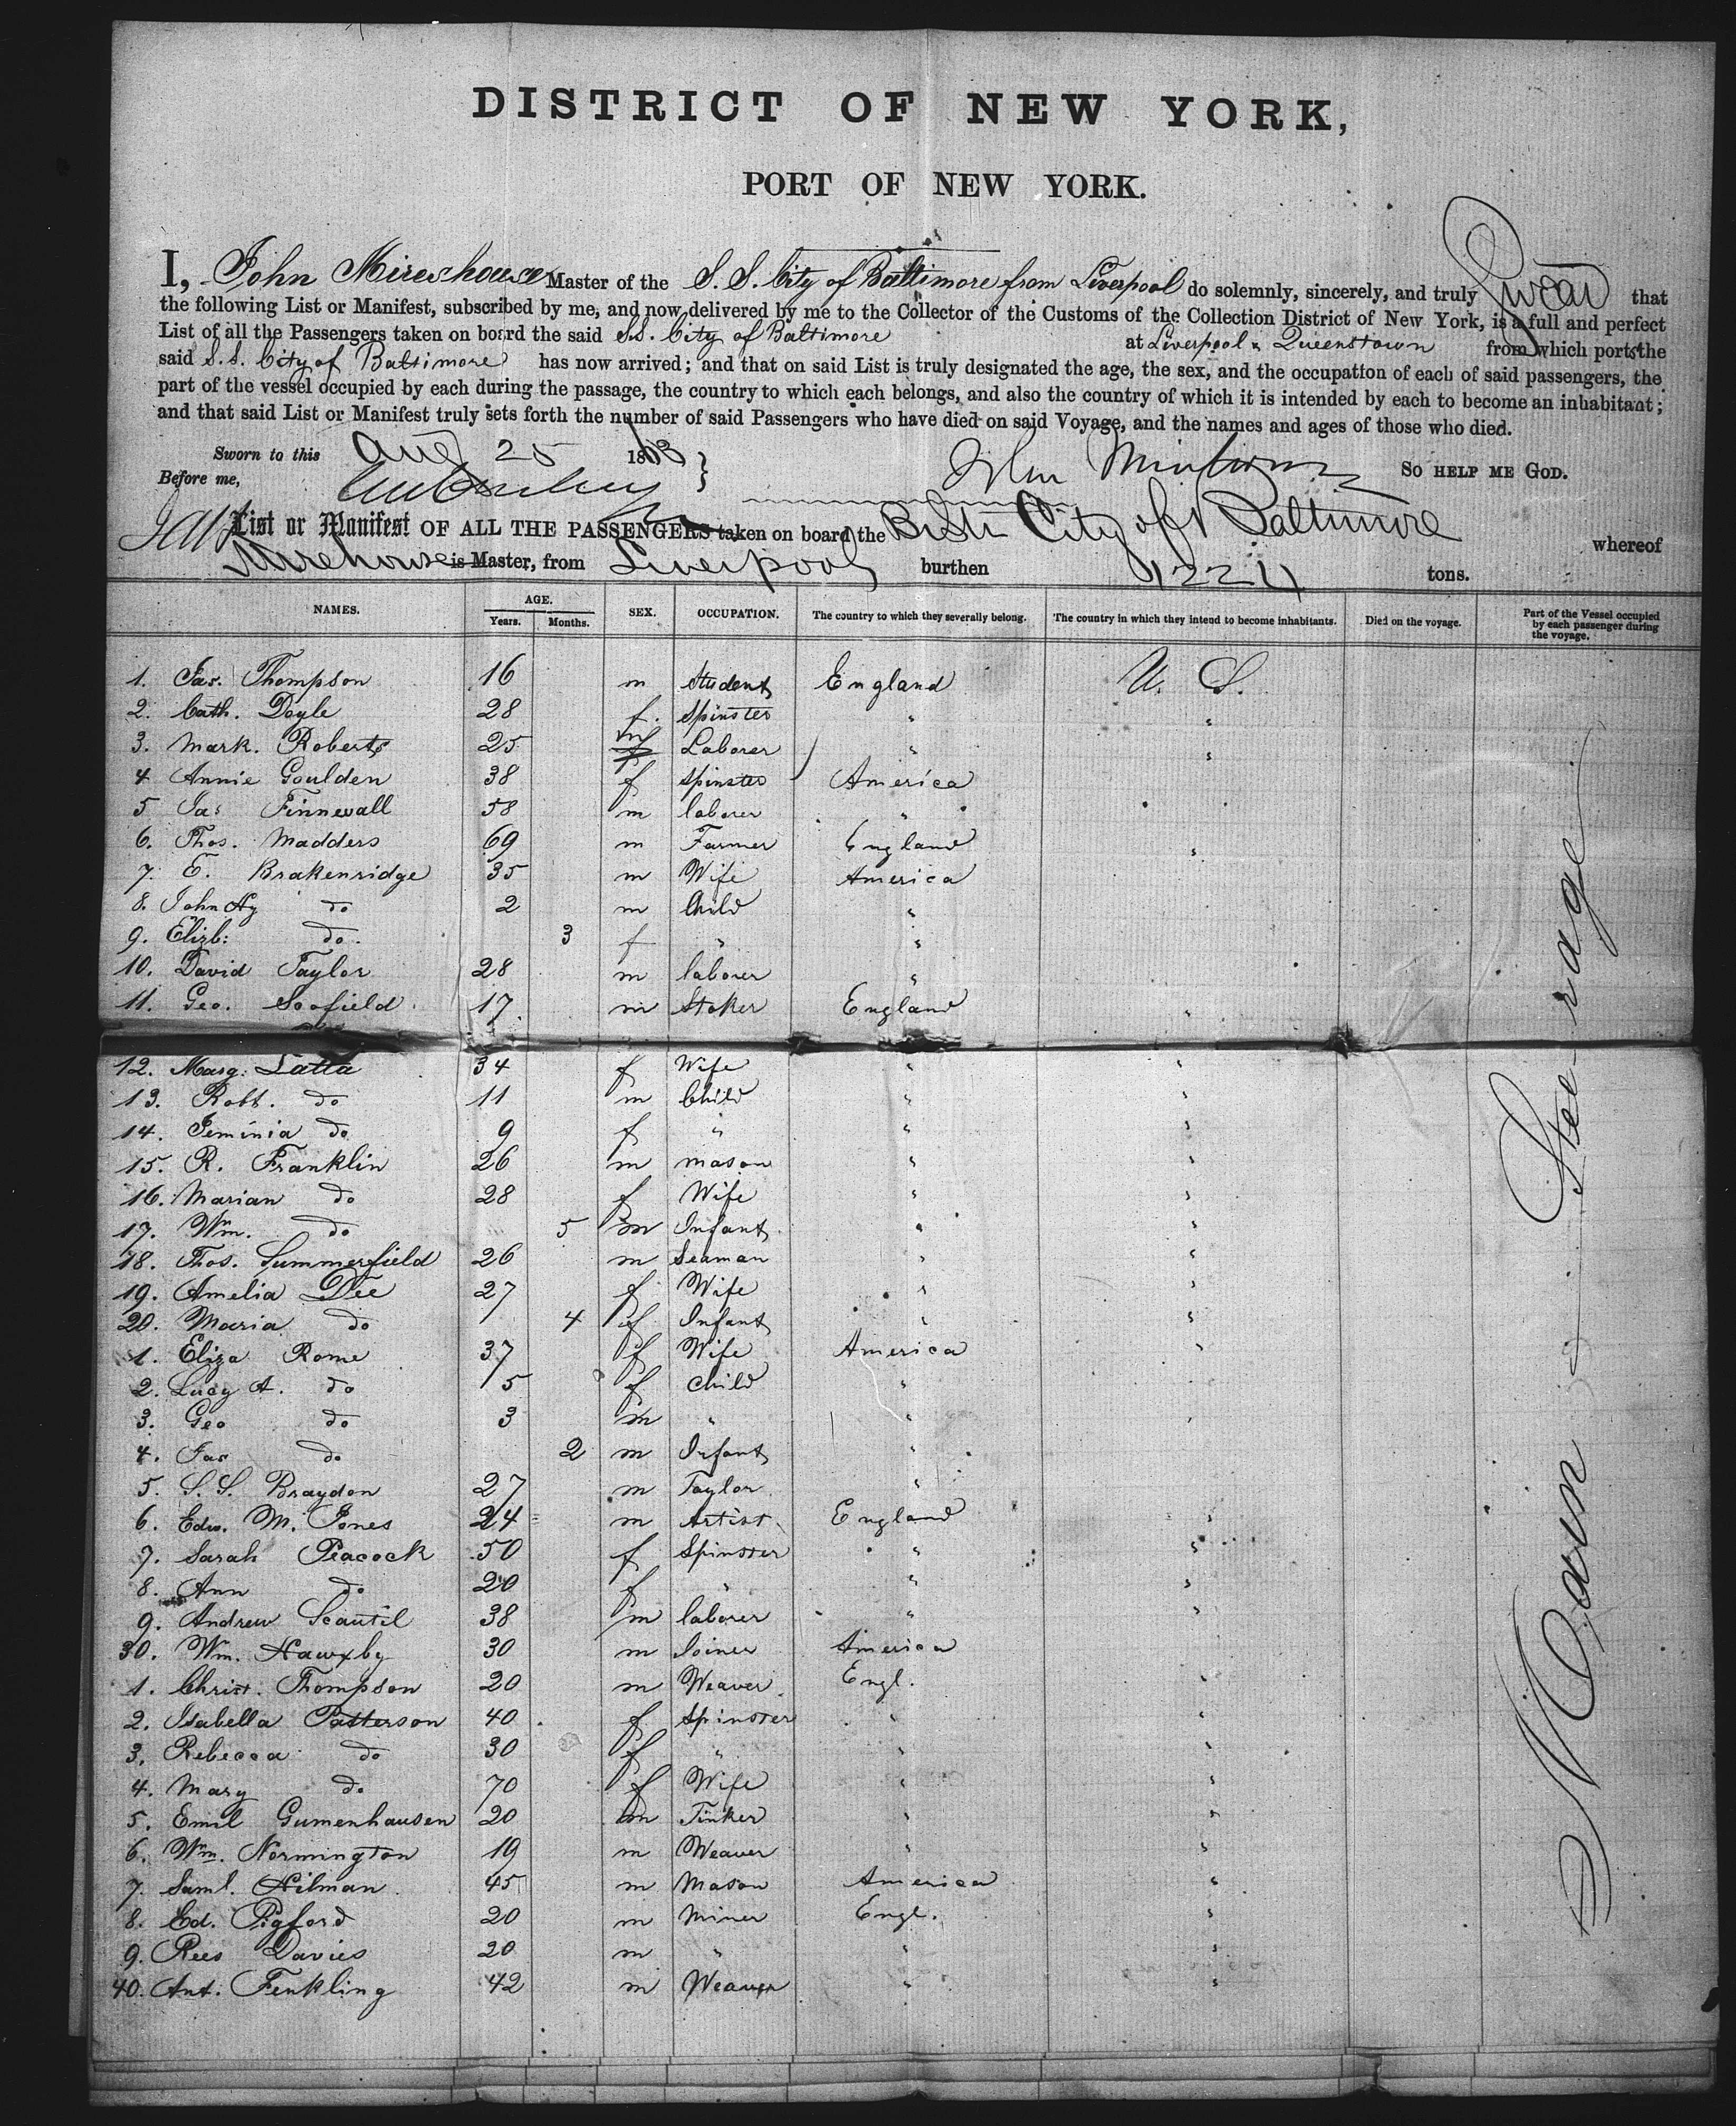 DISTRICT OF NEW YORK,
PORT OF NEW YORK.
I, John Mirehouse Master of the S. S. City of Baltimore from Liverpool do solemnly, sincerely, and truly Swear that
the following List or Manifest, subscribed by me, and now delivered by me to the Collector of the Customs of the Collection District of New York, is a full and perfect
List of all the Passengers taken on board the said S.S. City of Baltimore at Liverpool & Queenstown from which ports the
said S. S. City of Baltimore has now arrived; and that on said List is truly designated the age, the sex, and the occupation of each of said passengers, the
part of the vessel occupied by each during the passage, the country to which each belongs, and also the country of which it is intended by each to become an inhabitant;
and that said List or Manifest truly sets forth the number of said Passengers who have died on said Voyage, and the names and ages of those who died.
Sworn to this Aug 25 1863 John Mirehouse SO HELP ME GOD.
Before me,
List or Manifest OF ALL THE PASSENGERS taken on board the City of Baltimore whereof
Mirehouse is Master, from Liverpool burthen tons.
NAMES. AGE. Years. Months. SEX. OCCUPATION. The country to which they severally belong. The country in which they intend to become inhabitants. Died on the voyage. Part of the Vessel occupied by each passenger during the voyage.
1. Jas. Thompson 16 m Student England U. S.
2. Cath. Doyle 28 f. Spinster " "
3. Mark. Roberts 25 m Laborer " "
4 Annie Goulden 38 f Spinster America
5 Jas Finnewall 58 m laborer " "
6. Thos. Madders 69 m Farmer England "
7. E. Brakenridge 35 m Wife America
8. John Hy do 2 m Child "
9. Elizb: do. 3 f " "
10. David Taylor 28 m laborer "
11. Geo. Scofield 17. m Stoker England "
12. Marg: Latta 34 f Wife " "
13. Robt. do 11 m Child " "
14. Jeminia do 9 f " " "
15. R. Franklin 26 m mason " "
16. Marian do 28 f Wife " "
17. Wm. do 5 m Infant " "
18. Thos. Summerfield 26 m Seaman " "
19. Amelia Dee 27 f Wife " "
20. Maria do 4 f Infant " "
1. Eliza Rome 37 f Wife America "
2. Lucy A. do 5 f Child "
3. Geo do 3 m " " "
4. Jas do 2 m Infant "
5. S. S. Braydon 27 m Taylor "
6. Edw. M. Jones 24 m Artist England "
7. Sarah Peacock 50 f Spinster " "
8. Ann do 20 f " " "
9. Andrew Scautil 38 m laborer " "
30. Wm. Hawxby 30 m Joiner America
1. Christ. Thompson 20 m Weaver Engl. "
2. Isabella Patterson 40 f Spinster " "
3. Rebecca do 30 f " " "
4. Mary do 70 f Wife " "
5. Emil Gumenhausen 20 m Tinker " "
6. Wm. Normington 19 m Weaver " "
7. Saml. Hilman 45 m Mason America "
8. Ed. Pigford 20 m Miner Engl. "
9. Rees Davies 20 m " " "
40. Ant. Fenkling 42 m Weaver " "
Main Steerage